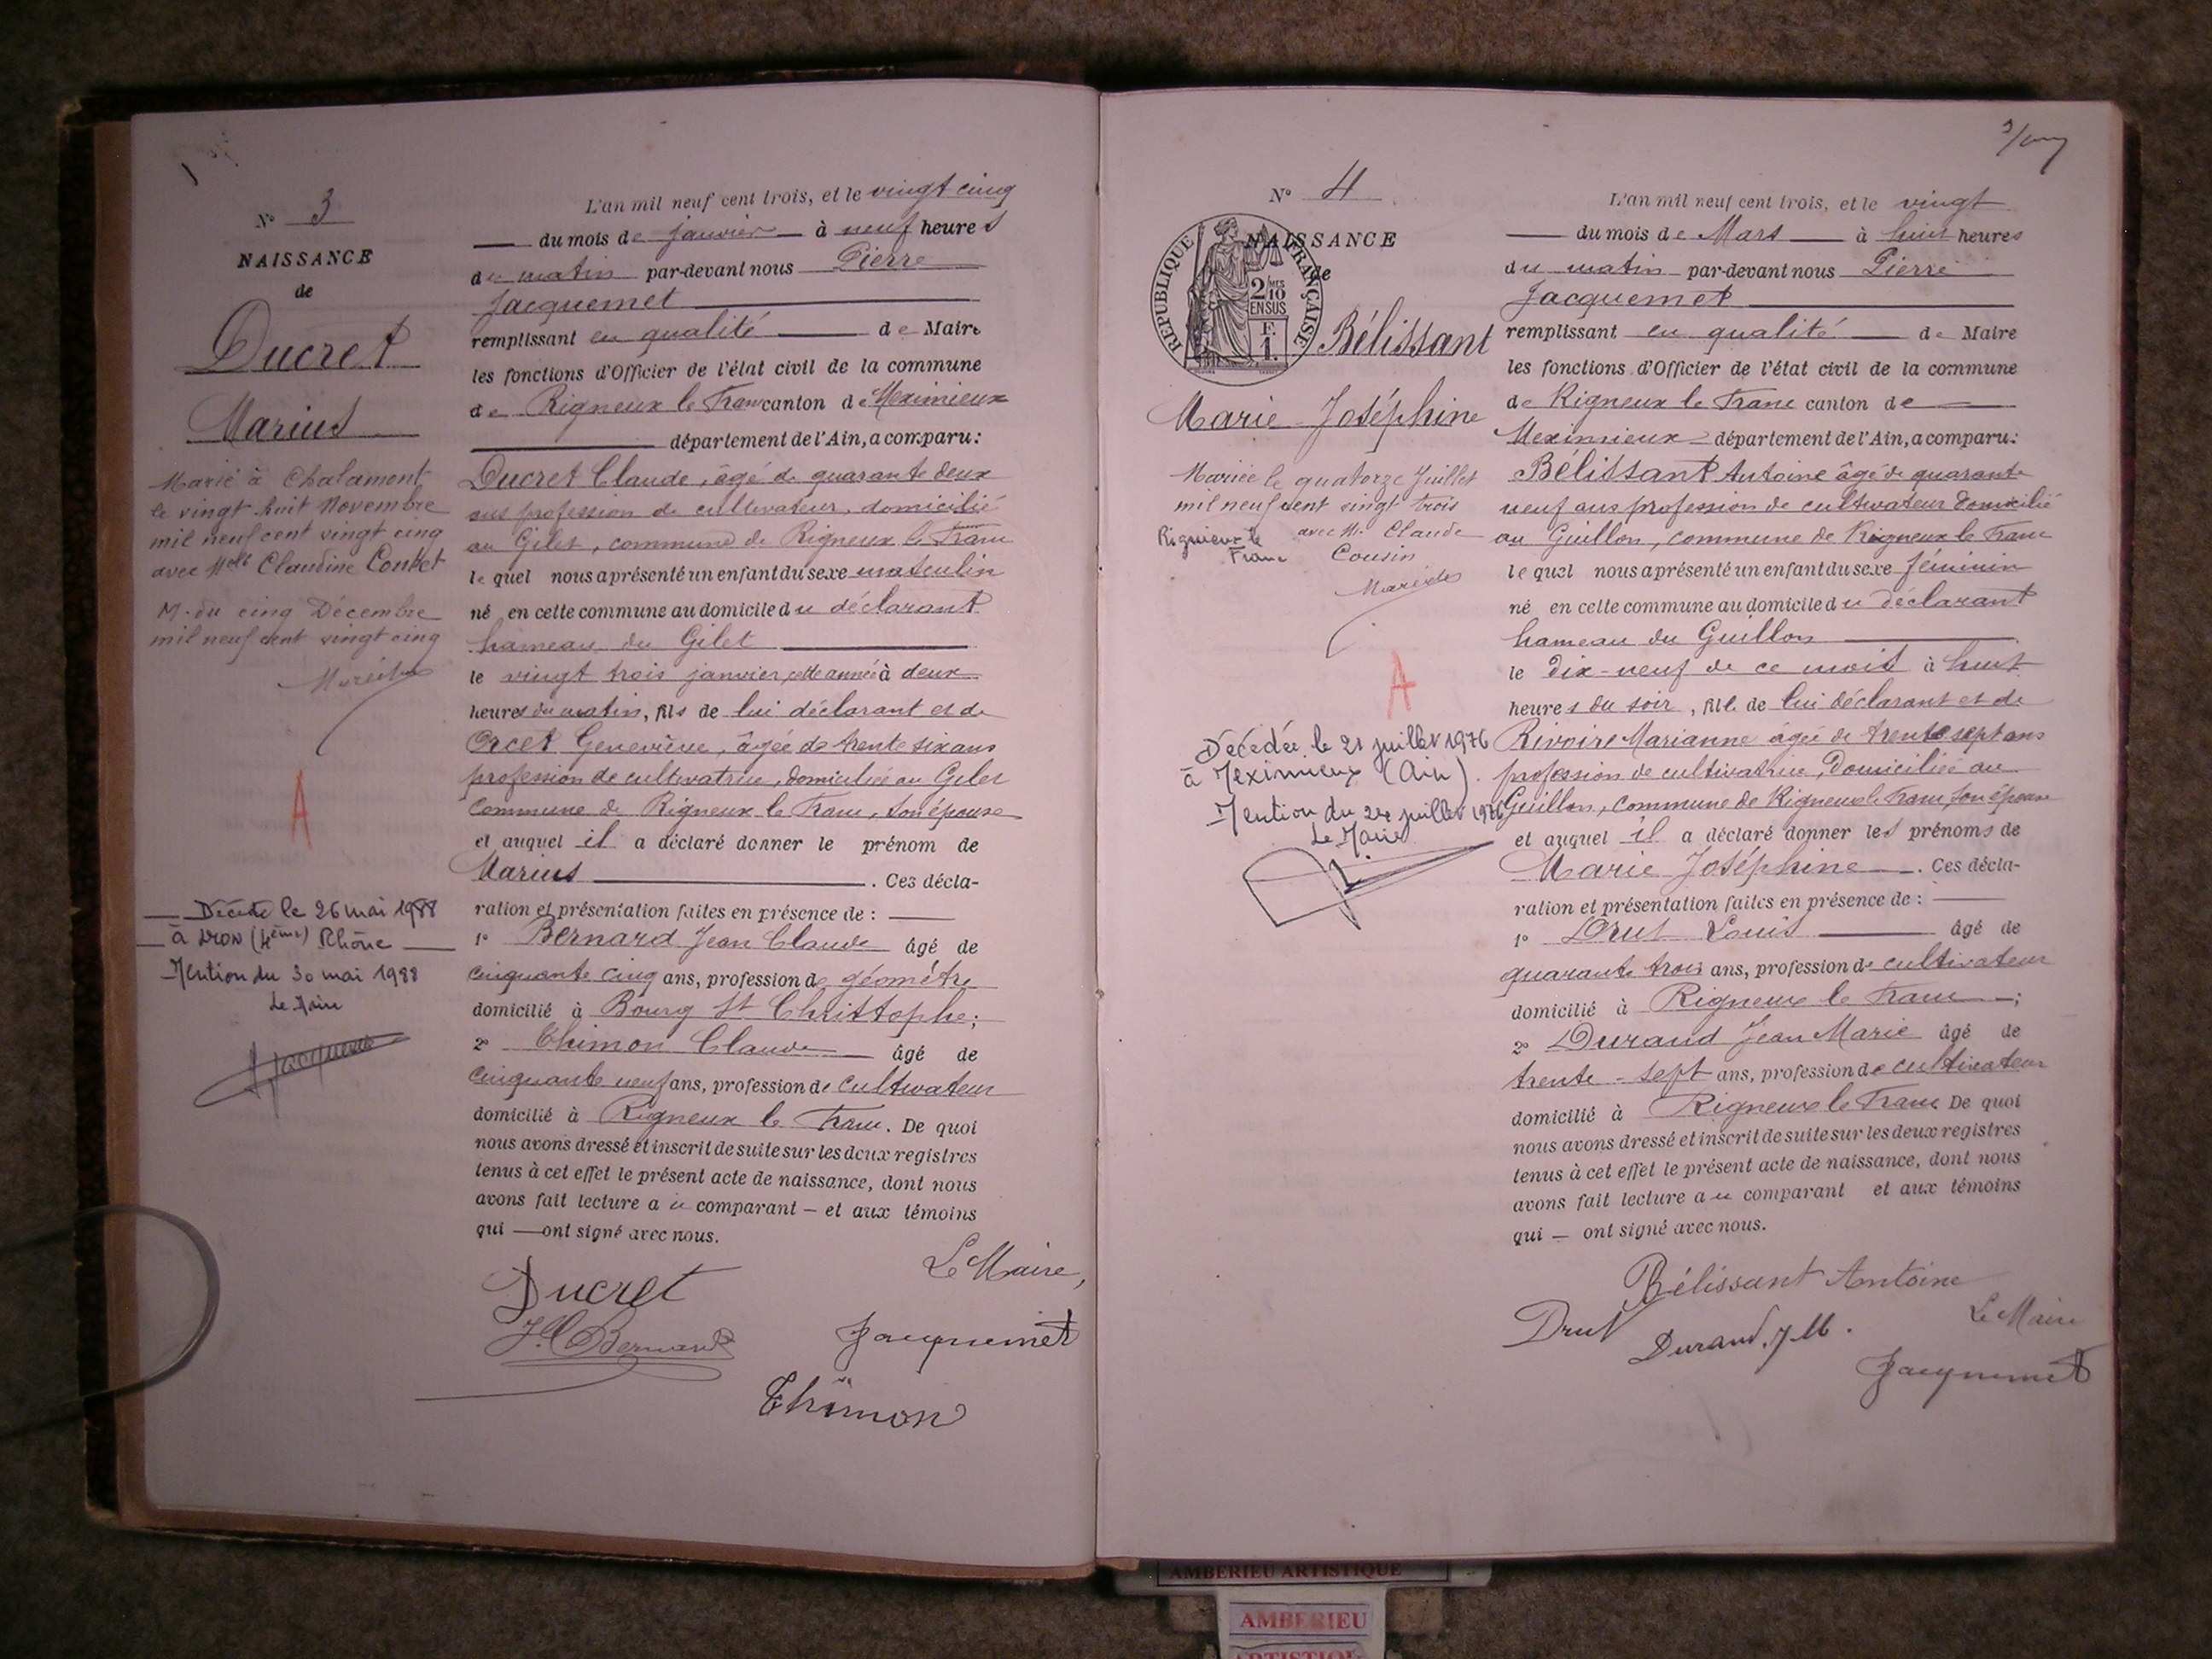 N° 3
NAISSANCE
de
Ducret
Marius
Marié à Chalamont
le vingt-huit Novembre
mil neuf cent vingt cinq
avec Melle Claudine
M. du cinq Décembre
mil neuf cent vingt cinq
A
Décédé le 26 mai 1988
à LYON (4ème) Rhône
Mention du 30 mai 1988
Le Maire
L'an mil neuf cent trois, et le vingt cinq
du mois de janvier à neuf heures
du matin par-devant nous Pierre
Jacquemet
remplissant en qualité de Maire
les fonctions d'Officier de l'état civil de la commune
de Rigneux le Franc canton de Meximieux
département de l'Ain, a comparu:
Ducret Claude, âgé de quarante deux
ans profession de cultivateur, domicilié
au Gilet, commune de Rigneux le Franc
lequel nous a présenté un enfant du sexe masculin
né en cette commune au domicile du déclarant
hameau du Gilet
le vingt trois janvier, cette année à deux
heures du matin, fils de lui déclarant et de
Orcet Geneviève, âgée de trente six ans
profession de cultivatrice, domiciliée au Gilet
commune de Rigneux le Franc, son épouse
et auquel il a déclaré donner le prénom de
Marius. Ces décla-
ration et présentation faites en présence de :
1° Bernard Jean Claude âgé de
cinquante cinq ans, profession de géomètre
domicilié à Bourg St Christophe;
2° Thimon Claude âgé de
cinquante neuf ans, profession de cultivateur
domicilié à Rigneux le Franc. De quoi
nous avons dressé et inscrit de suite sur les deux registres
tenus à cet effet le présent acte de naissance, dont nous
avons fait lecture au comparant – et aux témoins
qui — ont signé avec nous.
Ducret
Le Maire,
J. C. Bernard
Jacquemet
Thimon
N° 4
NAISSANCE
de
REPUBLIQUE FRANÇAISE
2 MES 10
EN SUS
F.
1.
Bélissant
Marie Joséphine
Mariée le quatorze Juillet
mil neuf cent vingt trois
Rignieux le avec Mr Claude
Franc Cousin
A
Décédée le 21 juillet 1976
à Meximieux (Ain).
Mention du 24 juillet 1976
Le Maire
L'an mil neuf cent trois, et le vingt
du mois de Mars à huit heures
du matin par-devant nous Pierre
Jacquemet
remplissant en qualité de Maire
les fonctions d'Officier de l'état civil de la commune
de Rigneux le Franc canton de
Meximieux département de l'Ain, a comparu:
Bélissant Antoine âgé de quarante
neuf ans profession de cultivateur domicilié
au Guillon, commune de Rigneux le Franc
lequel nous a présenté un enfant du sexe féminin
né en cette commune au domicile du déclarant
hameau du Guillon
le dix-neuf de ce mois à huit
heures du soir, fille de lui déclarant et de
Rivoire Marianne âgée de trente sept ans
profession de cultivatrice, domiciliée au
Guillon, commune de Rigneux le Franc son épouse
et auquel il a déclaré donner les prénoms de
Marie Joséphine. Ces décla-
ration et présentation faites en présence de :
1° Drut Louis âgé de
quarante trois ans, profession de cultivateur
domicilié à Rigneux le Franc —;
2° Durand Jean Marie âgé de
trente-sept ans, profession de cultivateur
domicilié à Rigneux le Franc De quoi
nous avons dressé et inscrit de suite sur les deux registres
tenus à cet effet le présent acte de naissance, dont nous
avons fait lecture au comparant et aux témoins
qui — ont signé avec nous.
Bélissant Antoine
Drut
Durand. J M.
Le Maire
Jacquemet
AMBERIEU ARTISTIQUE
AMBERIEU
ARTISTIQUE